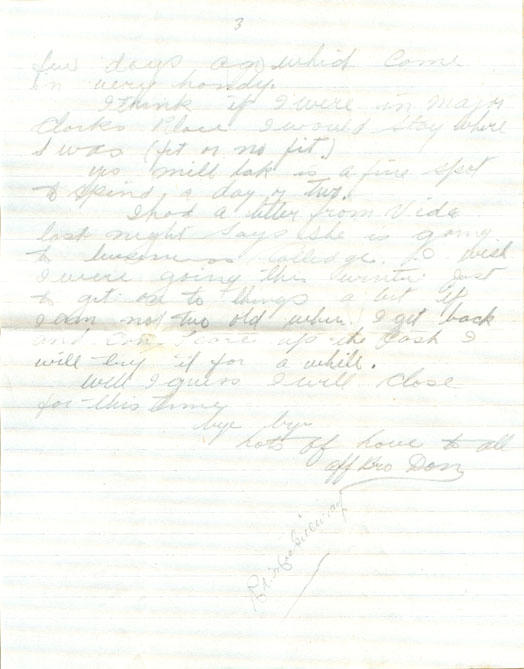 3
few days ago which come
in very handy.
I think if I were in Major
Clarks Place I would stay where
I was (fit or no fit.)
yes mill bak is a fine spot
to spend a day or two.
I had a letter from Vida
last night says she is going
to business Colledge. I wish
I were going this winter just
to get on to things a bit if
I am not two old when I get back
and can scare up the cash I
will try it for a while.
Well I guess I will close
for this time
bye bye
Lots of Love to all
aff Bro Don